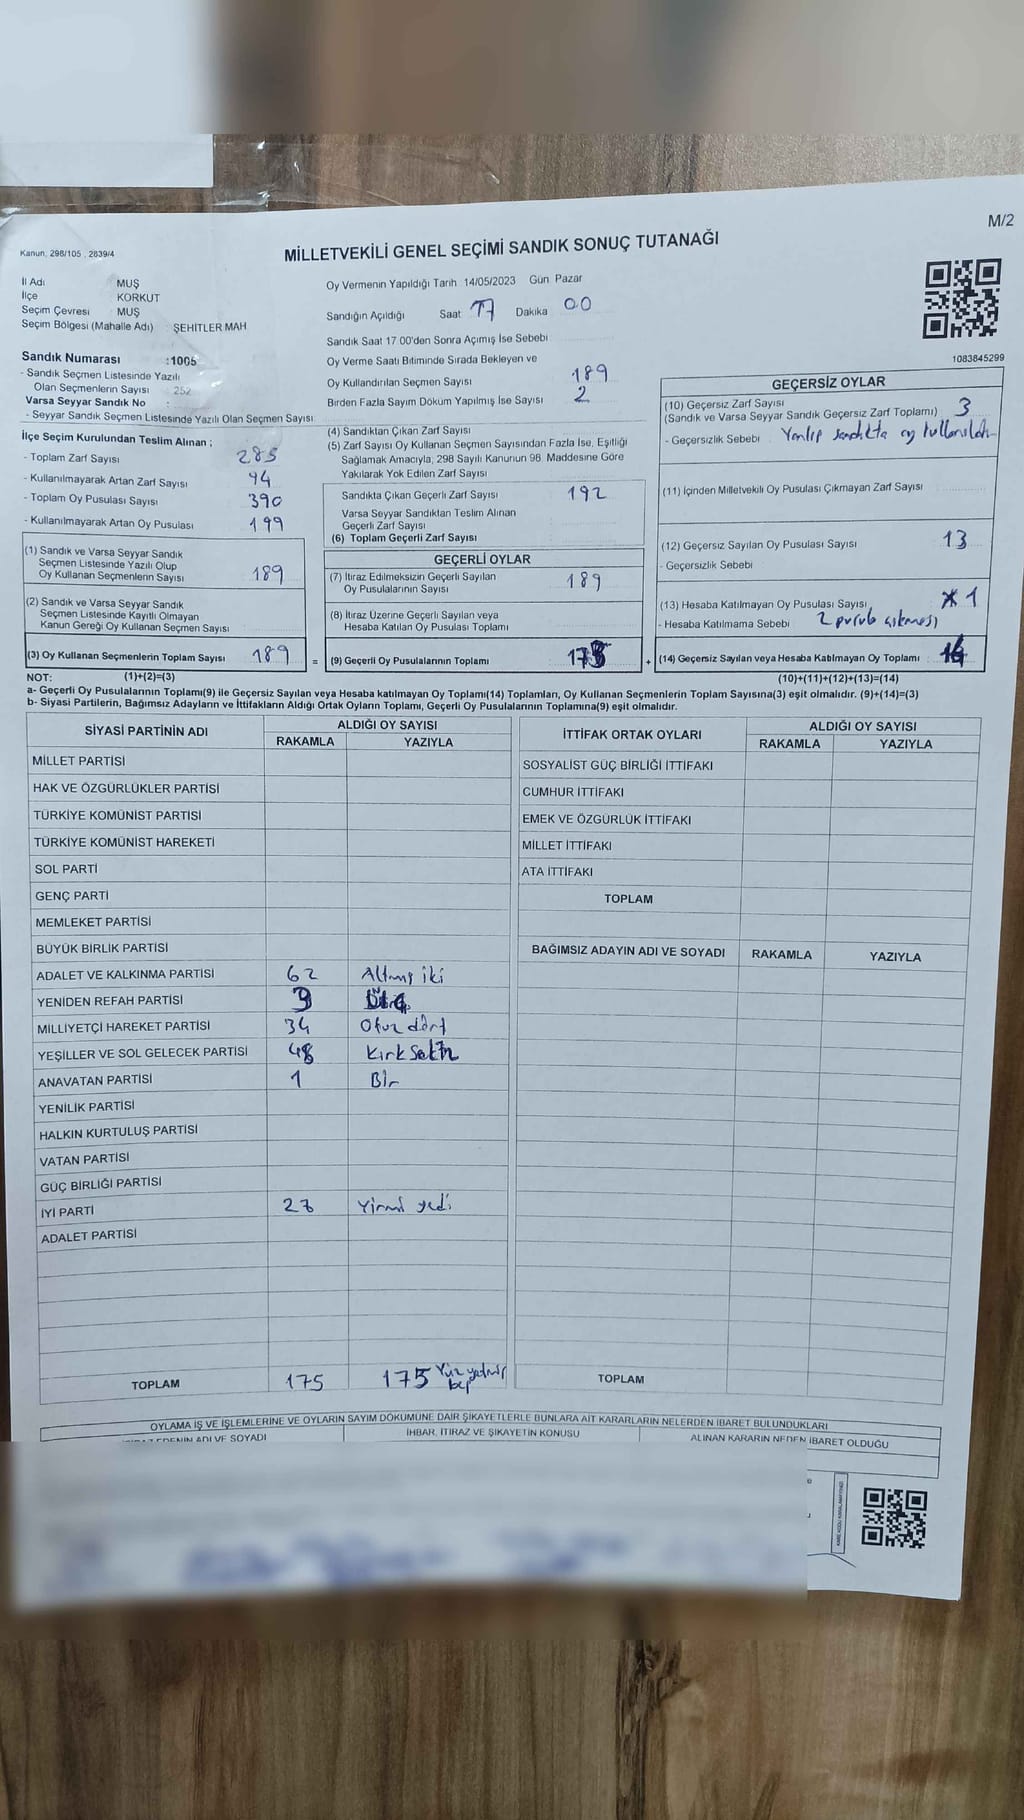 M/2
Kanun, 298/105 , 2839/4
MİLLETVEKİLİ GENEL SEÇİMİ SANDIK SONUÇ TUTANAĞI
İl Adı : MUŞ
İlçe : KORKUT
Seçim Çevresi : MUŞ
Seçim Bölgesi (Mahalle Adı) : ŞEHİTLER MAH
Sandık Numarası :1005
- Sandık Seçmen Listesinde Yazılı
Olan Seçmenlerin Sayısı : 252
Varsa Seyyar Sandık No :
- Seyyar Sandık Seçmen Listesinde Yazılı Olan Seçmen Sayısı
İlçe Seçim Kurulundan Teslim Alınan ;
- Toplam Zarf Sayısı 285
- Kullanılmayarak Artan Zarf Sayısı 94
- Toplam Oy Pusulası Sayısı 390
- Kullanılmayarak Artan Oy Pusulası 199
(1) Sandık ve Varsa Seyyar Sandık
Seçmen Listesinde Yazılı Olup
Oy Kullanan Seçmenlerin Sayısı 189
(2) Sandık ve Varsa Seyyar Sandık
Seçmen Listesinde Kayıtlı Olmayan
Kanun Gereği Oy Kullanan Seçmen Sayısı
(3) Oy Kullanan Seçmenlerin Toplam Sayısı 189
Oy Vermenin Yapıldığı Tarih 14/05/2023 Gün Pazar
Sandığın Açıldığı Saat 17 Dakika 00
Sandık Saat 17 00'den Sonra Açımış İse Sebebi
Oy Verme Saati Bitiminde Sırada Bekleyen ve
Oy Kullandırılan Seçmen Sayısı 189
Birden Fazla Sayım Döküm Yapılmış İse Sayısı 2
(4) Sandıktan Çıkan Zarf Sayısı
(5) Zarf Sayısı Oy Kullanan Seçmen Sayısından Fazla İse, Eşitliği
Sağlamak Amacıyla, 298 Sayılı Kanunun 98. Maddesine Göre
Yakılarak Yok Edilen Zarf Sayısı
Sandıkta Çıkan Geçerli Zarf Sayısı 192
Varsa Seyyar Sandıktan Teslim Alınan
Geçerli Zarf Sayısı
(6) Toplam Geçerli Zarf Sayısı
GEÇERLİ OYLAR
(7) İtiraz Edilmeksizin Geçerli Sayılan
Oy Pusulalarının Sayısı 189
(8) İtiraz Üzerine Geçerli Sayılan veya
Hesaba Katılan Oy Pusulası Toplamı
= (9) Geçerli Oy Pusulalarının Toplamı 175
1083845299
GEÇERSİZ OYLAR
(10) Geçersiz Zarf Sayısı
(Sandık ve Varsa Seyyar Sandık Geçersiz Zarf Toplamı) 3
- Geçersizlik Sebebi Yanlış sandıkta oy kullanıldı
(11) İçinden Milletvekili Oy Pusulası Çıkmayan Zarf Sayısı
(12) Geçersiz Sayılan Oy Pusulası Sayısı 13
- Geçersizlik Sebebi
(13) Hesaba Katılmayan Oy Pusulası Sayısı 1
- Hesaba Katılmama Sebebi 2 pusula çıkması
+ (14) Geçersiz Sayılan veya Hesaba Katılmayan Oy Toplamı 14
NOT: (1)+(2)=(3) (10)+(11)+(12)+(13)=(14)
a- Geçerli Oy Pusulalarının Toplamı(9) ile Geçersiz Sayılan veya Hesaba katılmayan Oy Toplamı(14) Toplamları, Oy Kullanan Seçmenlerin Toplam Sayısına(3) eşit olmalıdır. (9)+(14)=(3)
b- Siyasi Partilerin, Bağımsız Adayların ve İttifakların Aldığı Ortak Oyların Toplamı, Geçerli Oy Pusulalarının Toplamına(9) eşit olmalıdır.
SİYASİ PARTİNİN ADI ALDIĞI OY SAYISI
RAKAMLA YAZIYLA
MİLLET PARTİSİ
HAK VE ÖZGÜRLÜKLER PARTİSİ
TÜRKİYE KOMÜNİST PARTİSİ
TÜRKİYE KOMÜNİST HAREKETİ
SOL PARTİ
GENÇ PARTİ
MEMLEKET PARTİSİ
BÜYÜK BİRLİK PARTİSİ
ADALET VE KALKINMA PARTİSİ 62 Altmış iki
YENİDEN REFAH PARTİSİ 3 Üç
MİLLİYETÇİ HAREKET PARTİSİ 34 Otuz dört
YEŞİLLER VE SOL GELECEK PARTİSİ 48 Kırk sekiz
ANAVATAN PARTİSİ 1 Bir
YENİLİK PARTİSİ
HALKIN KURTULUŞ PARTİSİ
VATAN PARTİSİ
GÜÇ BİRLİĞİ PARTİSİ
İYİ PARTİ 27 Yirmi yedi
ADALET PARTİSİ
TOPLAM 175 175 Yüz yetmiş
beş
İTTİFAK ORTAK OYLARI ALDIĞI OY SAYISI
RAKAMLA YAZIYLA
SOSYALİST GÜÇ BİRLİĞİ İTTİFAKI
CUMHUR İTTİFAKI
EMEK VE ÖZGÜRLÜK İTTİFAKI
MİLLET İTTİFAKI
ATA İTTİFAKI
TOPLAM
BAĞIMSIZ ADAYIN ADI VE SOYADI RAKAMLA YAZIYLA
TOPLAM
OYLAMA İŞ VE İŞLEMLERİNE VE OYLARIN SAYIM DÖKÜMÜNE DAİR ŞİKAYETLERLE BUNLARA AİT KARARLARIN NELERDEN İBARET BULUNDUKLARI
ADI VE SOYADI İHBAR, İTİRAZ VE ŞİKAYETİN KONUSU ALINAN KARARIN NEDEN İBARET OLDUĞU